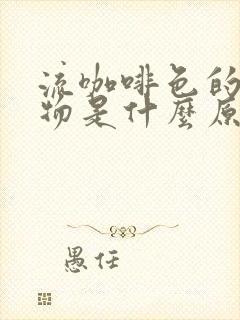 流咖啡色的
物是什麼原
愚任